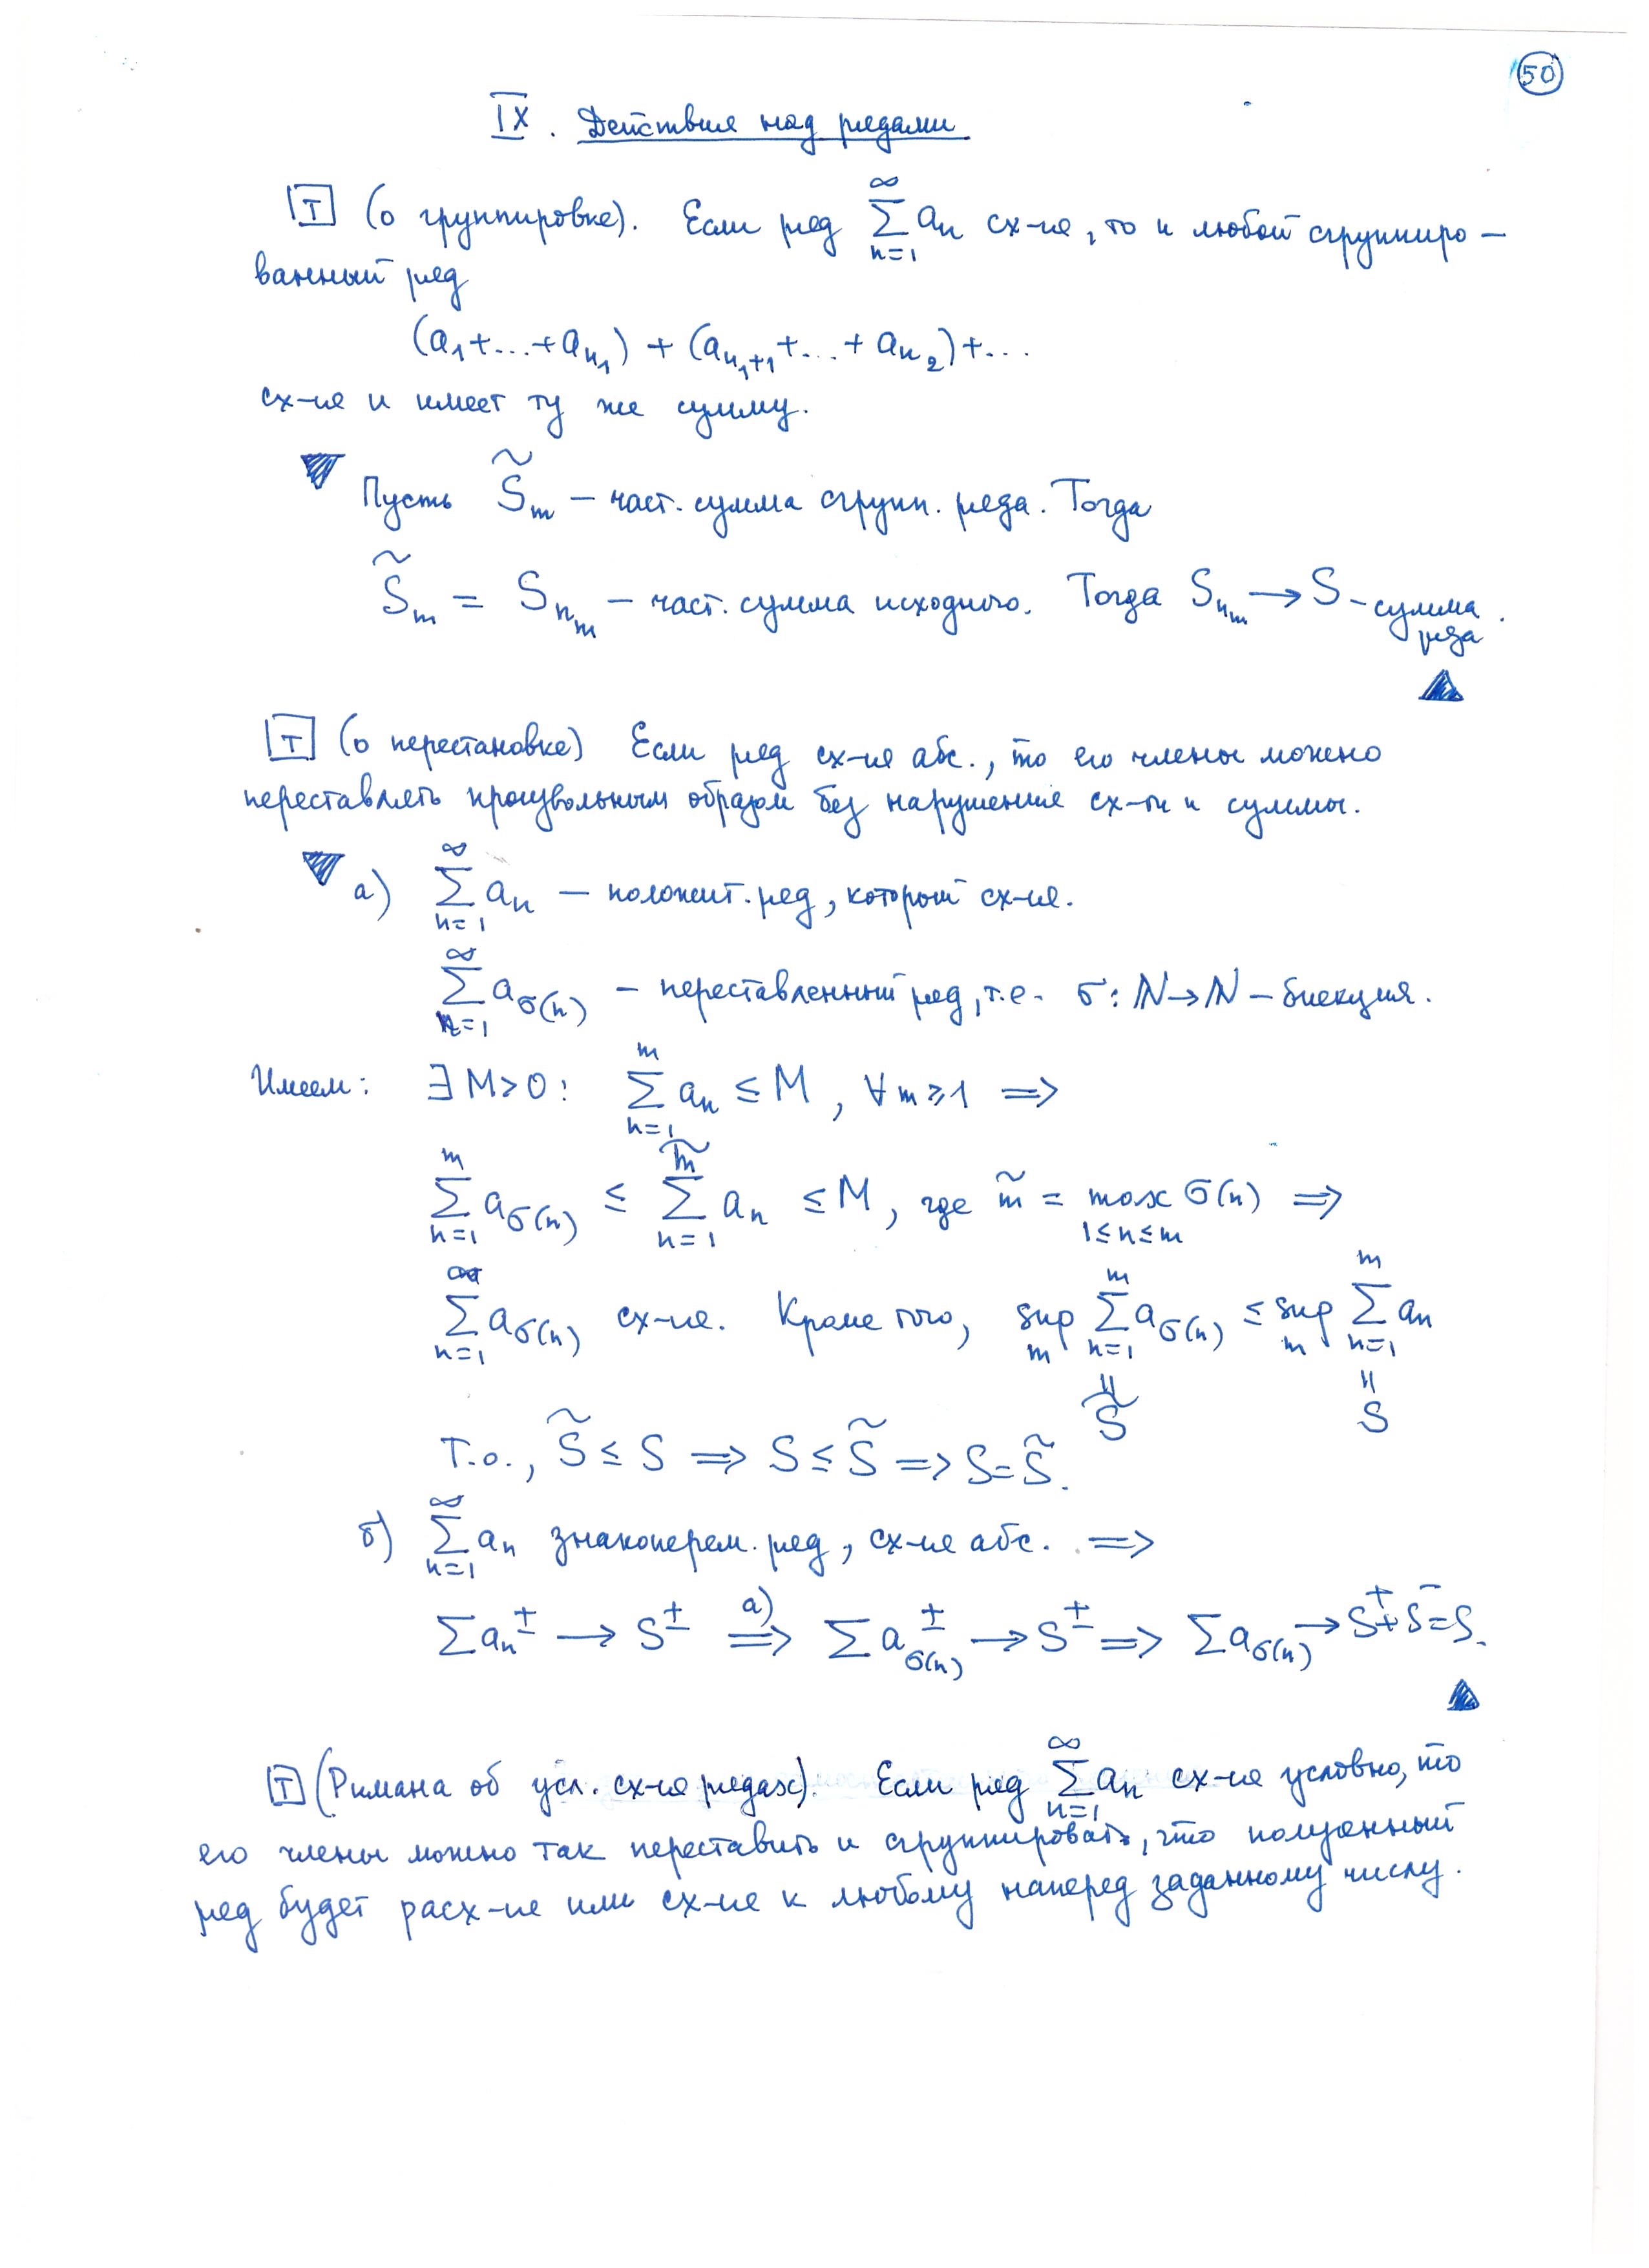 50
IX. Действия над рядами
T (о группировке). Если ряд ∑_{n=1}^{∞} a_n сх-ся, то и любой сгруппиро-
ванный ряд
(a_1+...+a_{n_1}) + (a_{n_1+1}+...+a_{n_2})+...
сх-ся и имеет ту же сумму.
▼ Пусть S̃_m – част. сумма групп. ряда. Тогда
S̃_m = S_{n_m} – част. сумма исходного. Тогда S_{n_m} → S – сумма ряда.
▲
T (о перестановке) Если ряд сх-ся абс., то его члены можно
переставлять произвольным образом без нарушения сх-ти и суммы.
▼ а) ∑_{n=1}^{∞} a_n – положит. ряд, который сх-ся.
∑_{n=1}^{∞} a_{σ(n)} – переставленный ряд, т.е. σ: ℕ→ℕ – биекция.
Имеем: ∃ M>0: ∑_{n=1}^{m} a_n ≤ M, ∀ m ≥ 1 ⇒
∑_{n=1}^{m} a_{σ(n)} ≤ ∑_{n=1}^{m̃} a_n ≤ M, где m̃ = max_{1≤n≤m} σ(n) ⇒
∑_{n=1}^{∞} a_{σ(n)} сх-ся. Кроме того, sup_m ∑_{n=1}^{m} a_{σ(n)} ≤ sup_m ∑_{n=1}^{m} a_n
= S̃ = S
Т.о., S̃ ≤ S ⇒ S ≤ S̃ ⇒ S = S̃.
б) ∑_{n=1}^{∞} a_n знакоперем. ряд, сх-ся абс. ⇒
∑ a_n^± → S^± ⇒^{а)} ∑ a_{σ(n)}^± → S^± ⇒ ∑ a_{σ(n)} → S^+ + S^- = S.
▲
T (Римана об усл. сх-ся рядах). Если ряд ∑_{n=1}^{∞} a_n сх-ся условно, то
его члены можно так переставить и сгруппировать, что полученный
ряд будет расх-ся или сх-ся к любому наперед заданному числу.